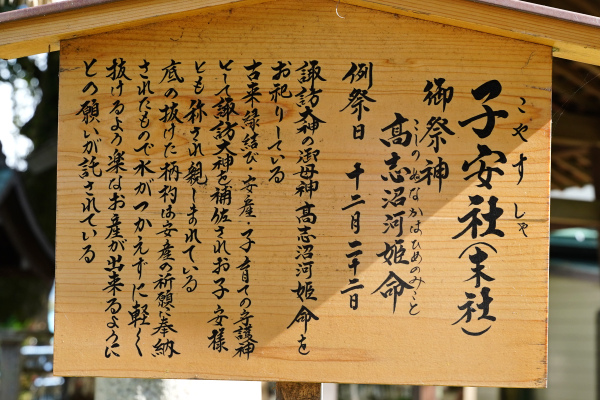 こやす しゃ
子安社(末社)
御祭神
こしのぬなかはひめのみこと
高志沼河姫命
例祭日 十二月二十二日
諏訪大神の御母神高志沼河姫命を
お祀りしている
古来縁結び・安産・子育ての守護神
として諏訪大神を補佐されお子安様
とも称され親しまれている
底の抜けた柄杓は安産の祈願に奉納
されたもので水がつかえずに軽く
抜けるよう楽なお産が出来るように
との願いが託されている